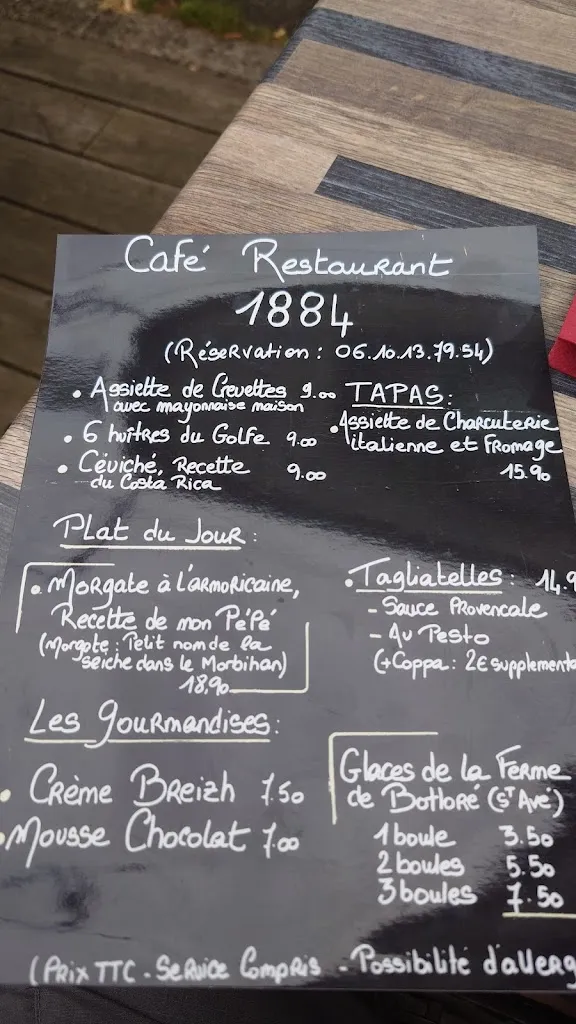 Café Restaurant
1884
(Réservation : 06.10.13.79.54)
• Assiette de Crevettes 9.00
avec mayonnaise maison
• 6 huîtres du Golfe 9.00
• Céviché, Recette 9.00
du Costa Rica
TAPAS :
• Assiette de Charcuterie
italienne et Fromage
15.90
Plat du Jour :
• Morgate à l'armoricaine,
Recette de mon Pépé
(Morgate : Petit nom de la
seiche dans le Morbihan)
18,90
• Tagliatelles : 14.9
- Sauce Provencale
- Au Pesto
(+Coppa : 2€ supplementa
Les Gourmandises :
• Crème Breizh 7.50
• Mousse Chocolat 7.00
Glaces de la Ferme
de Botloré (St Avé)
1 boule 3.50
2 boules 5.50
3 boules 7.50
(Prix TTC - Service Compris - Possibilité d'allerg